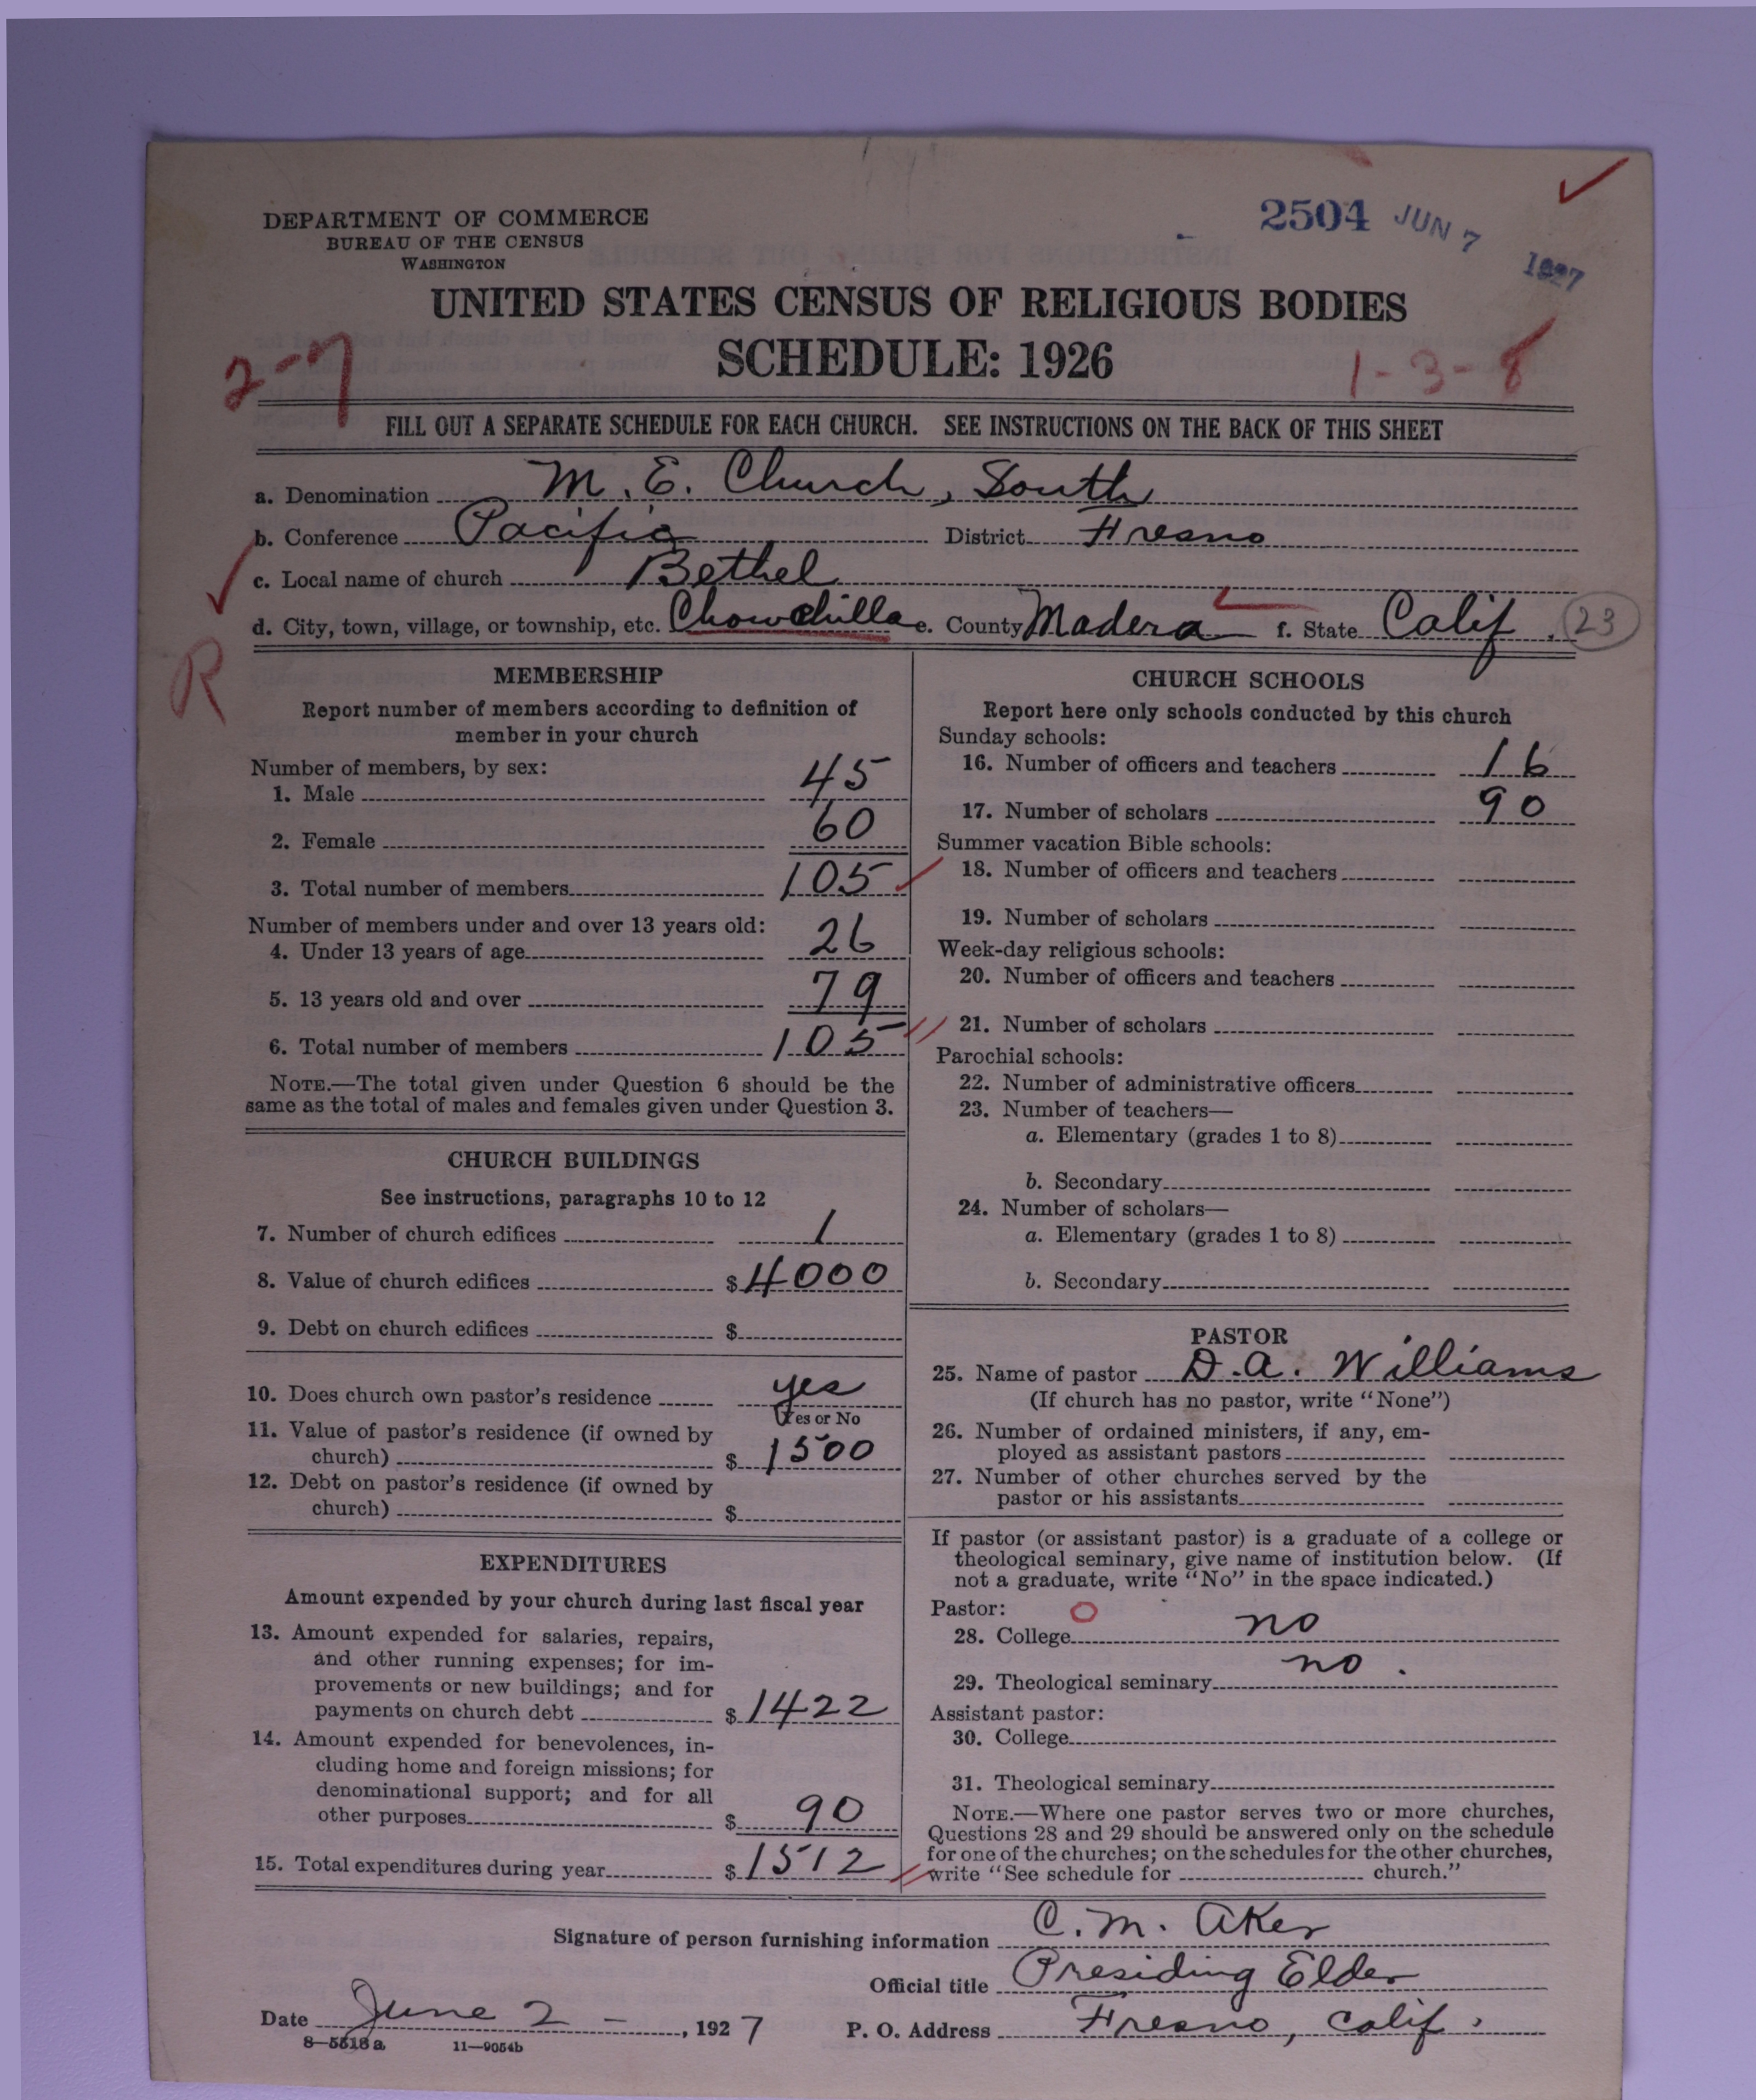 DEPARTMENT OF COMMERCE
BUREAU OF THE CENSUS
WASHINGTON
2504 JUN 7 1927
UNITED STATES CENSUS OF RELIGIOUS BODIES
SCHEDULE: 1926
2-7
1-3-8
FILL OUT A SEPARATE SCHEDULE FOR EACH CHURCH. SEE INSTRUCTIONS ON THE BACK OF THIS SHEET
a. Denomination M. E. Church, South
b. Conference Pacific District Fresno
c. Local name of church Bethel
d. City, town, village, or township, etc. Chowchilla e. County Madera f. State Calif. 23
R
MEMBERSHIP
Report number of members according to definition of
member in your church
Number of members, by sex:
1. Male 45
2. Female 60
3. Total number of members 105
Number of members under and over 13 years old:
4. Under 13 years of age 26
5. 13 years old and over 79
6. Total number of members 105
NOTE.—The total given under Question 6 should be the
same as the total of males and females given under Question 3.
CHURCH BUILDINGS
See instructions, paragraphs 10 to 12
7. Number of church edifices 1
8. Value of church edifices $4000
9. Debt on church edifices $
10. Does church own pastor's residence yes
Yes or No
11. Value of pastor's residence (if owned by
church) $1500
12. Debt on pastor's residence (if owned by
church) $
EXPENDITURES
Amount expended by your church during last fiscal year
13. Amount expended for salaries, repairs,
and other running expenses; for im-
provements or new buildings; and for
payments on church debt $1422
14. Amount expended for benevolences, in-
cluding home and foreign missions; for
denominational support; and for all
other purposes $90
15. Total expenditures during year $1512
CHURCH SCHOOLS
Report here only schools conducted by this church
Sunday schools:
16. Number of officers and teachers 16
17. Number of scholars 90
Summer vacation Bible schools:
18. Number of officers and teachers
19. Number of scholars
Week-day religious schools:
20. Number of officers and teachers
21. Number of scholars
Parochial schools:
22. Number of administrative officers
23. Number of teachers—
a. Elementary (grades 1 to 8)
b. Secondary
24. Number of scholars—
a. Elementary (grades 1 to 8)
b. Secondary
PASTOR
25. Name of pastor D. A. Williams
(If church has no pastor, write "None")
26. Number of ordained ministers, if any, em-
ployed as assistant pastors
27. Number of other churches served by the
pastor or his assistants
If pastor (or assistant pastor) is a graduate of a college or
theological seminary, give name of institution below. (If
not a graduate, write "No" in the space indicated.)
Pastor: O
28. College no
29. Theological seminary no.
Assistant pastor:
30. College
31. Theological seminary
NOTE.—Where one pastor serves two or more churches,
Questions 28 and 29 should be answered only on the schedule
for one of the churches; on the schedules for the other churches,
write "See schedule for church."
Signature of person furnishing information C. M. Aker
Official title Presiding Elder
Date June 2 -, 1927 P. O. Address Fresno, Calif.
8—5518a 11—9054b